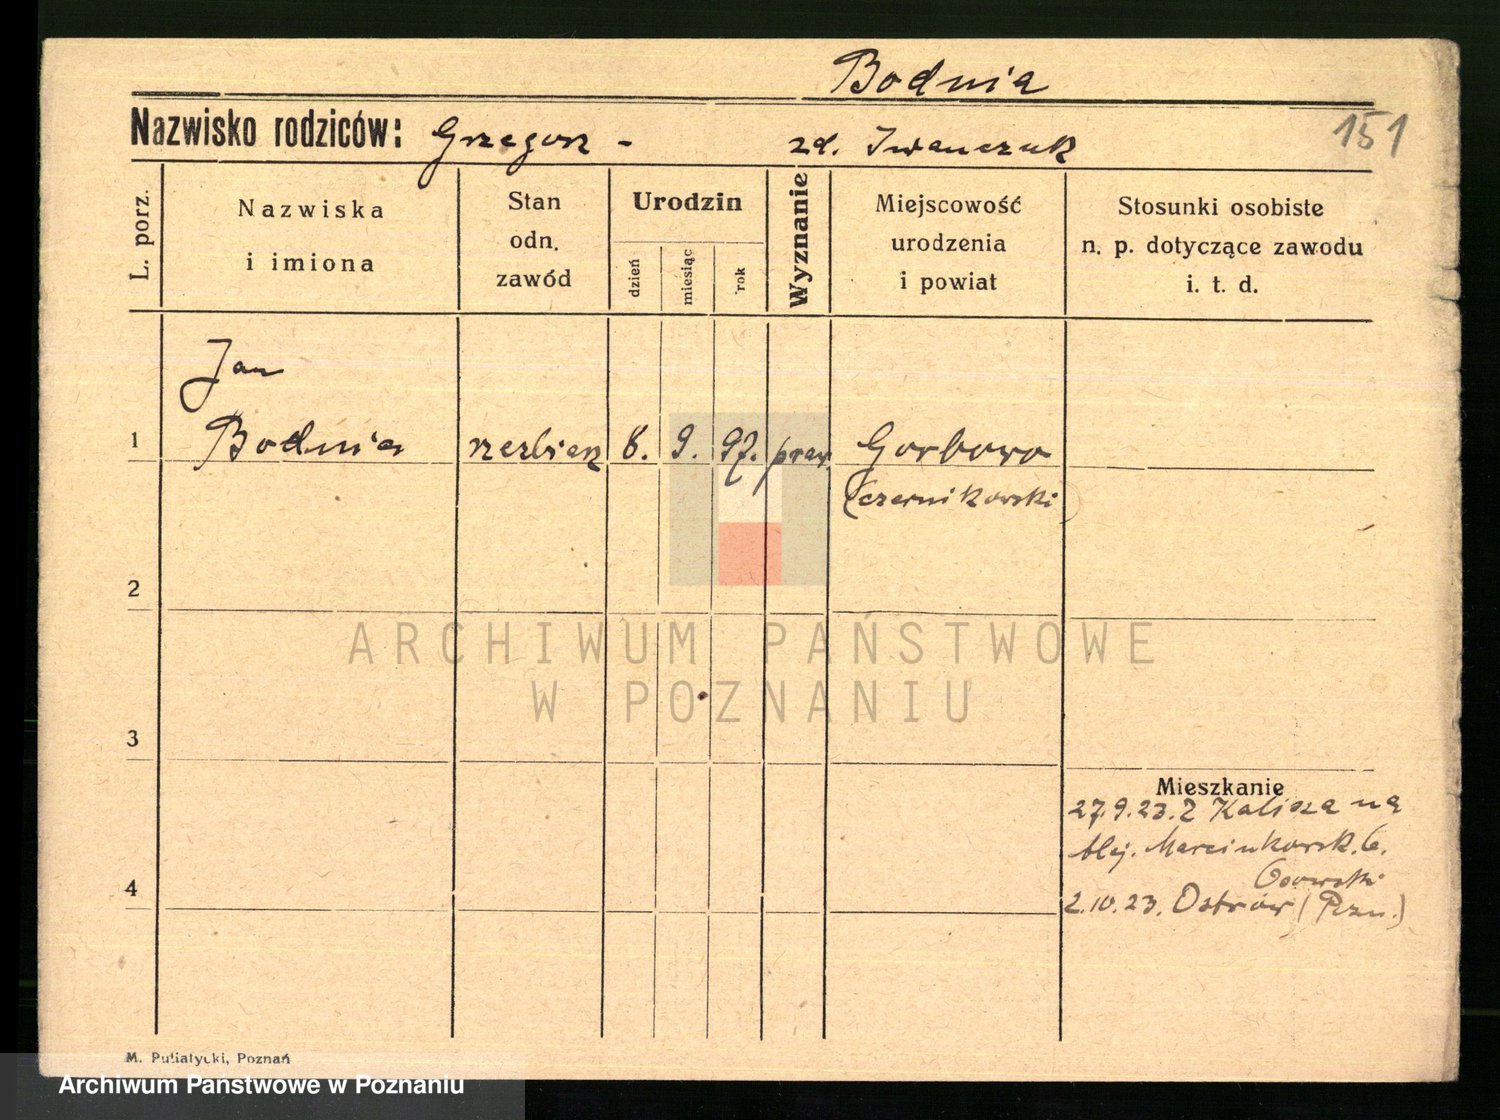 Bodnia
Nazwisko rodziców: Grzegorz - zd. Iwanczuk
151
L. porz.
Nazwiska
i imiona
Stan
odn.
zawód
Urodzin
dzień
miesiąc
rok
Wyznanie
Miejscowość
urodzenia
i powiat
Stosunki osobiste
n. p. dotyczące zawodu
i. t. d.
Jan
1 Bodnia rzezbiarz 8. 9. 97. praw Gorbowo
(czernikowski)
2
ARCHIWUM PAŃSTWOWE
W POZNANIU
3
Mieszkanie
27.9.23. Z Kalisza na
Alej. Marcinkowsk. 6.
4
2.10.23. Ostrów (Pzn.)
M. Putiatycki, Poznań
Archiwum Państwowe w Poznaniu